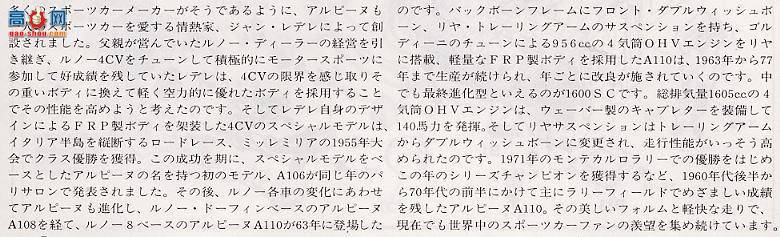 スポーツカーメーカーがそうであるように、アルピーヌも
スポーツカーを愛する情熱家、ジャン・レデレによって創
設されました。父親が営んでいたルノー・ディーラーの経営を引
き継ぎ、ルノー4CVをチューンして積極的にモータースポーツに
参加して好成績を残していたレデレは、4CVの限界を感じ取りそ
の重いボディに換えて軽く空力的に優れたボディを採用すること
でその性能を高めようと考えたのです。そしてレデレ自身のデザ
インによるFRP製ボディを架装した4CVのスペシャルモデルは、
イタリア半島を縦断するロードレース、ミッレミリアの1955年大
会でクラス優勝を獲得。この成功を期に、スペシャルモデルをベ
ースとしたアルピーヌの名を持つ初のモデル、A106が同じ年のパ
リサロンで発表されました。その後、ルノー各車の変化にあわせ
てアルピーヌも進化し、ルノー・ドーフィンベースのアルピーヌ
A108を経て、ルノー8ベースのアルピーヌA110が63年に登場した
のです。バックボーンフレームにフロント・ダブルウィッシュボ
ーン、リヤ・トレーリングアームのサスペンションを持ち、ゴル
ディーニのチューンによる956㏄の4気筒OHVエンジンをリヤ
に搭載、軽量なFRP製ボディを採用したA110は、1963年から77
年まで生産が続けられ、年ごとに改良が施されていくのです。中
でも最終進化型といえるのが1600SCです。総排気量1605㏄の4
気筒OHVエンジンは、ウェーバー製のキャブレターを装備して
140馬力を発揮。そしてリヤサスペンションはトレーリングアーム
からダブルウィッシュボーンに変更され、走行性能がいっそう高
められたのです。1971年のモンテカルロラリーでの優勝をはじめ
この年のシリーズチャンピオンを獲得するなど、1960年代後半か
ら70年代の前半にかけて主にラリーフィールドでめざましい成績
を残したアルピーヌA110。その美しいフォルムと軽快な走りで、
現在でも世界中のスポーツカーファンの羨望を集め続けています。